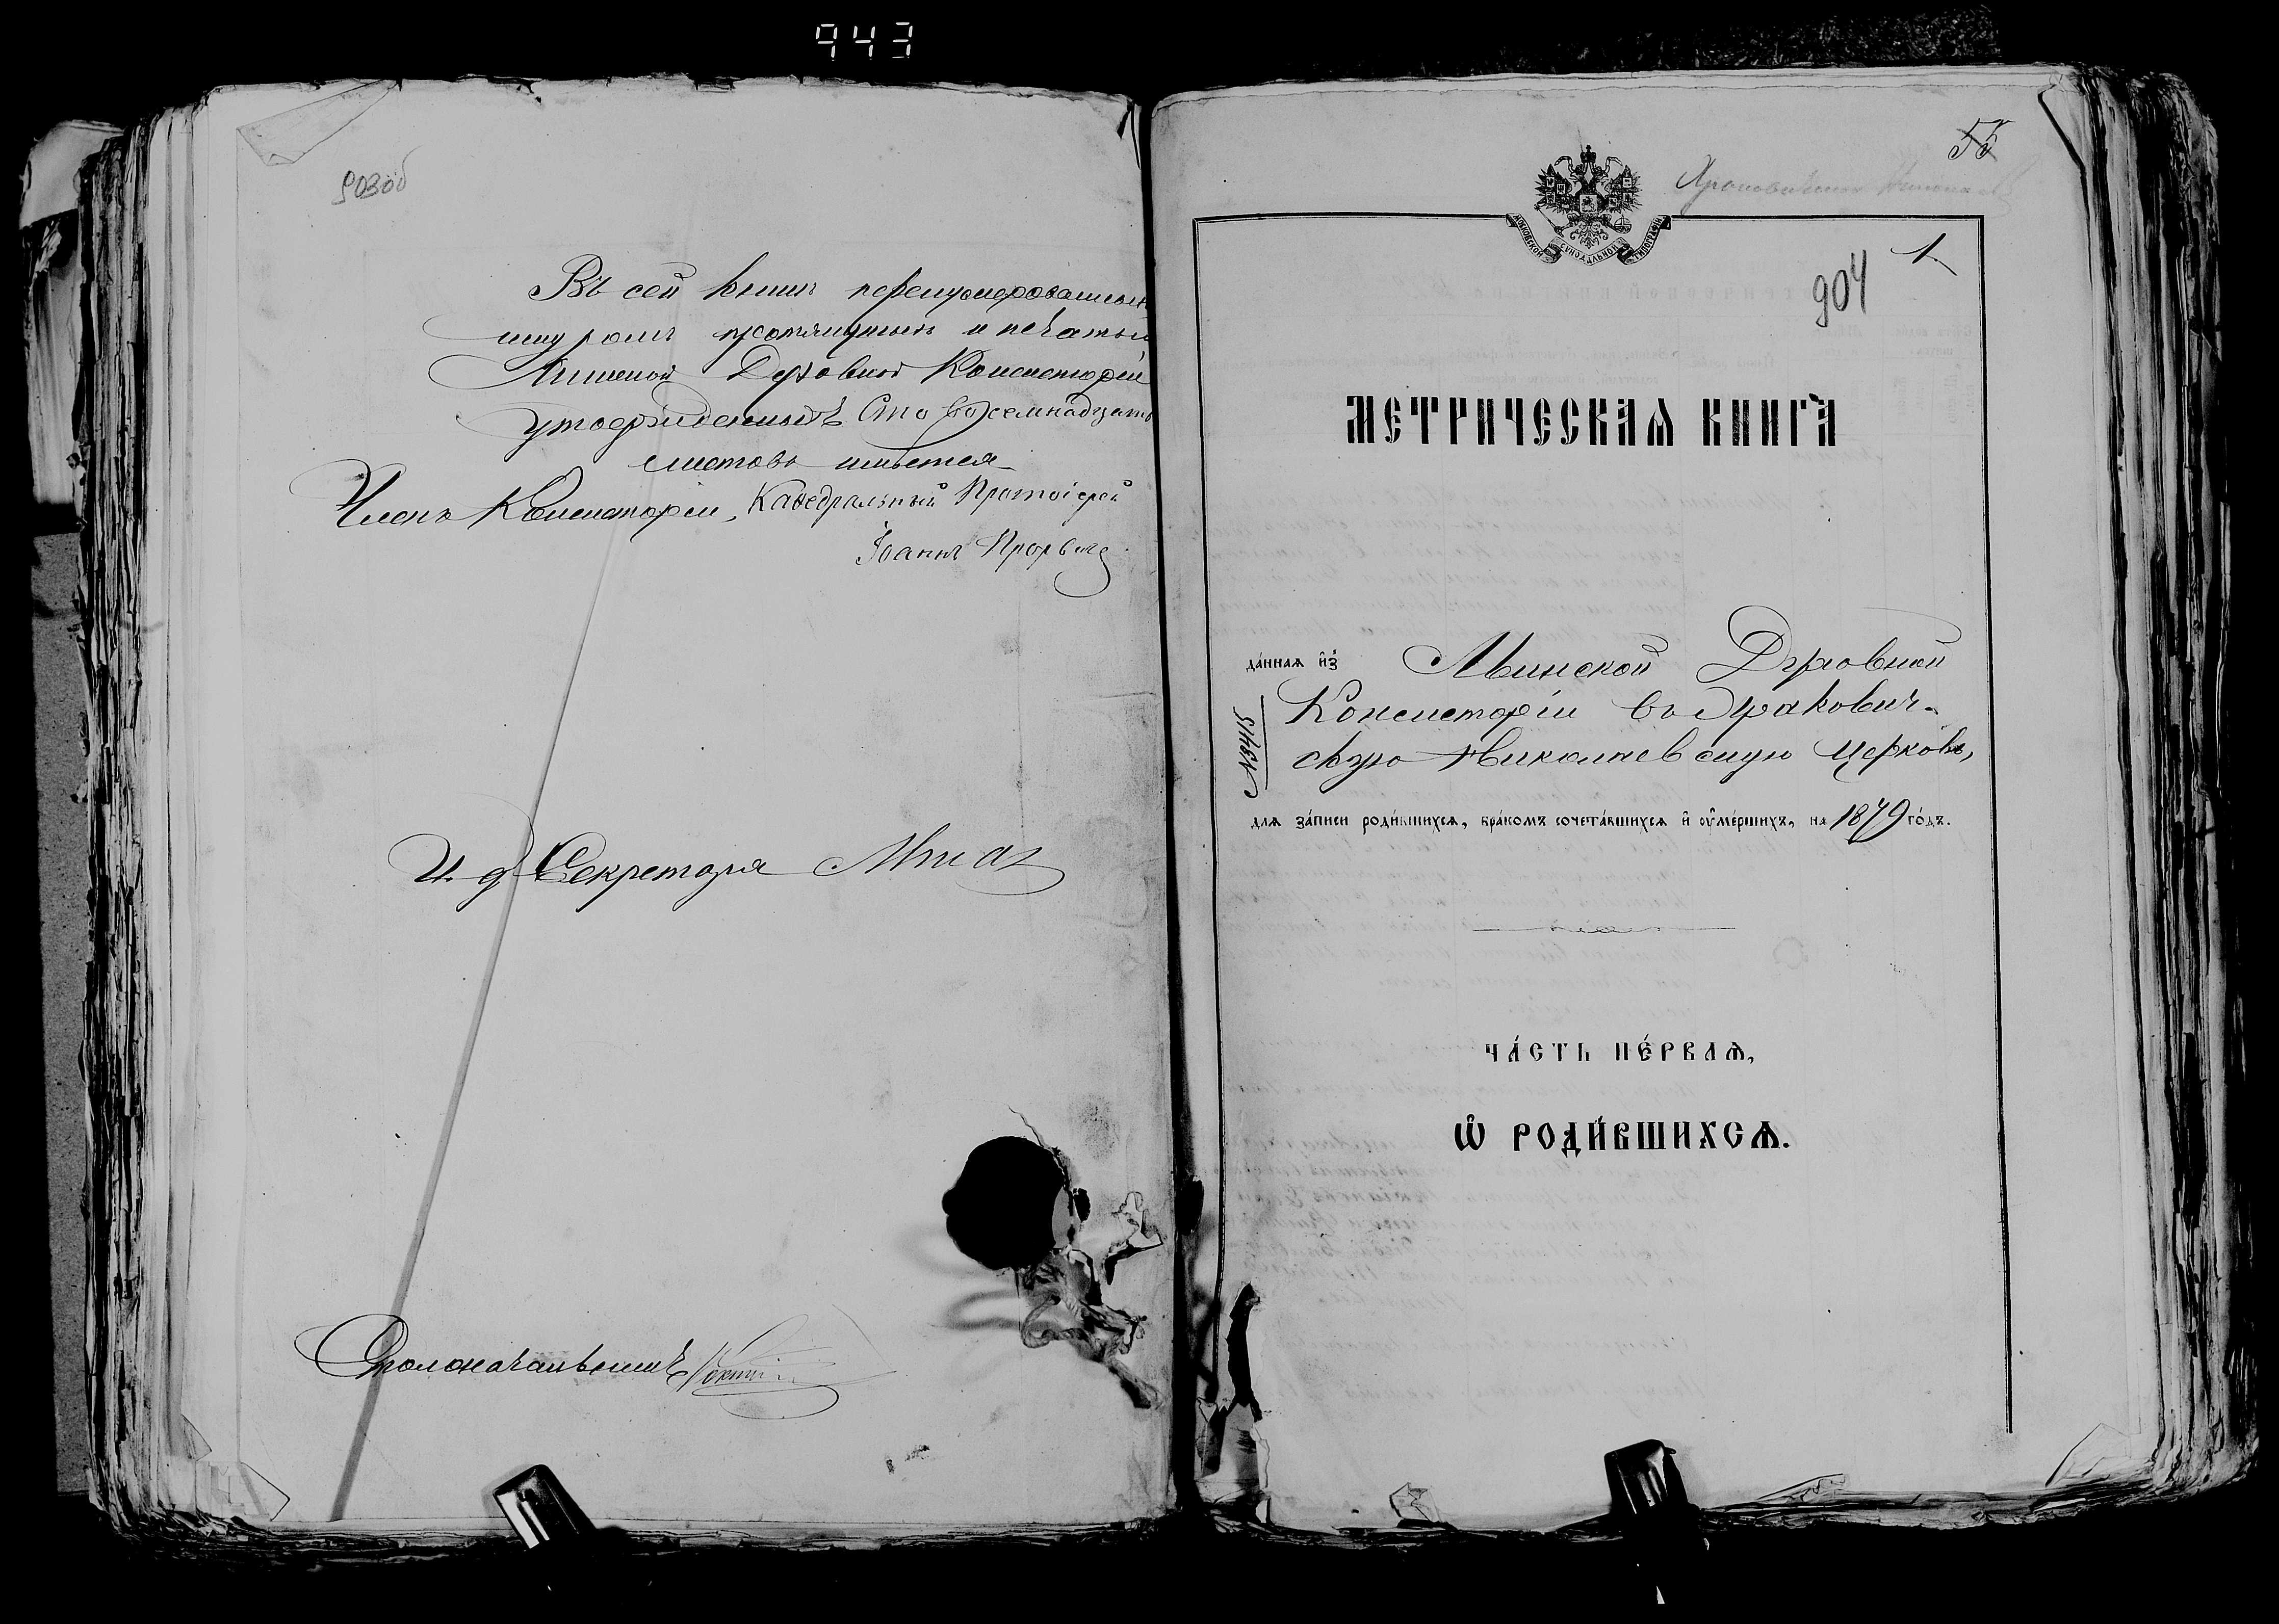 943
903об
Въ сей книгѣ перенумерованныхъ
шнуромъ протянутыхъ и печатью
Минской Духовной Консисторіи
утвержденныхъ Сто восемнадцать
листовъ имѣется
Членъ Консисторіи, Каѳедральный Протоіерей
Іоаннъ
И. д. Секретаря
Столоначальникъ
55
МОСКОВСКОЙ СѴНОДАЛЬНОЙ ТИПОГРАФІИ
1
904
МЕТРИЧЕСКАѦ КНИГА
да́ннаѧ и҆з̾ Минской Духовной
Консисторіи въ
скую Николаевскую церковь,
№3415
длѧ за́писи роди́вшихсѧ, бра́комъ сочета́вшихсѧ и҆ ᲂу҆ме́ршихъ, на 1879 го́дъ.
ЧА́СТЬ ПЕ́РВАѦ,
Ѡ҆ РОДИ́ВШИХСѦ.